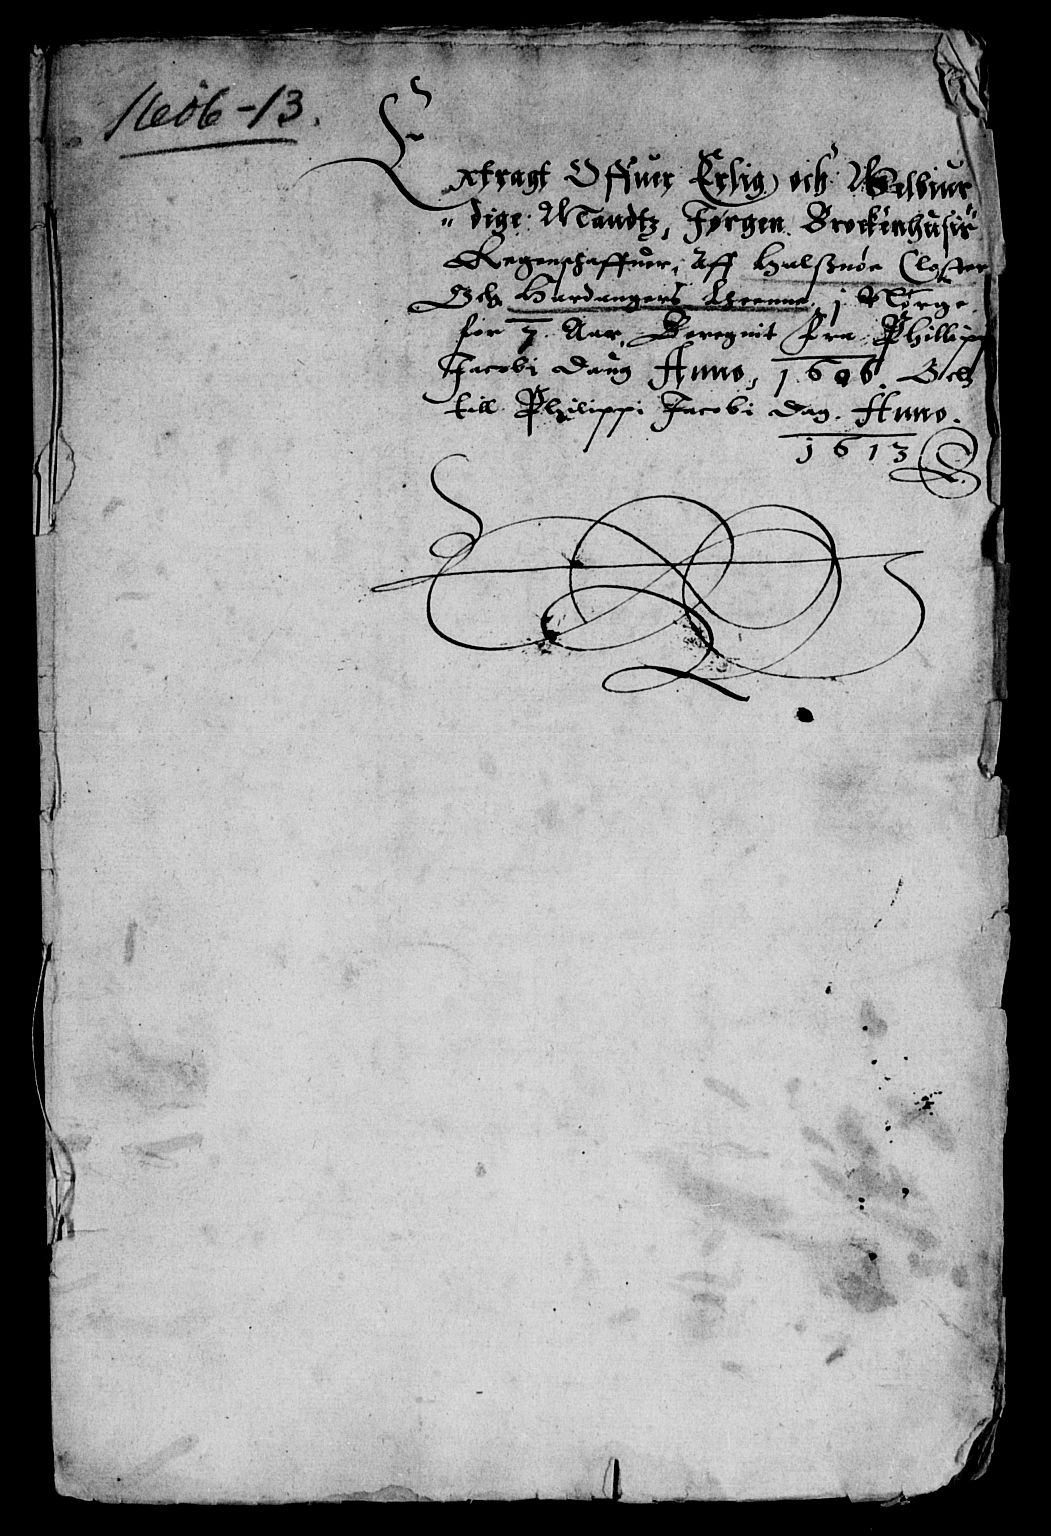 1606-13.
Extragt Offuer Erlig och Welbiur
"dige Mandtz, Jørgen Brockenhusis
Regenschaffuer, Aff Halsznøe Closter
Och Hardangers Lheenne, j Norge
for 7 Aar, Beregnit Fra Phillippi
Jacobi Daug Anno, 1606. Och
till Philippi Jacobi Dag. Anno.
1613